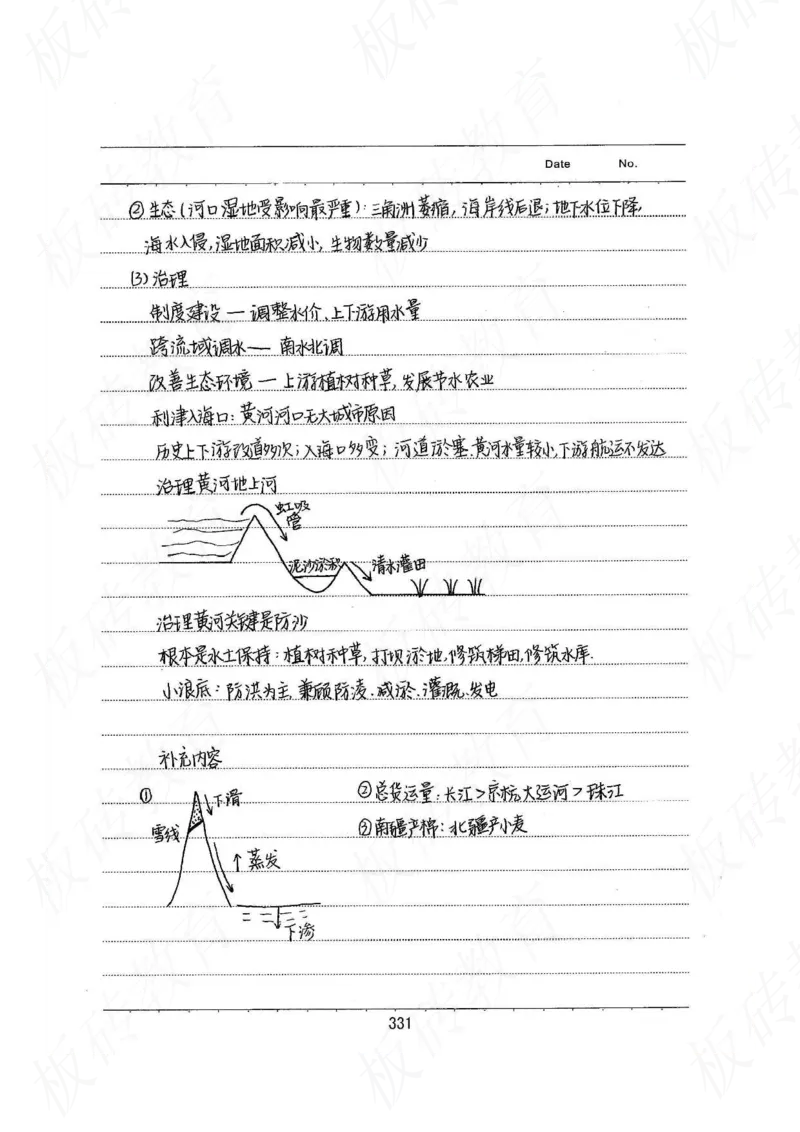 Date No.
②生态(河口湿地受影响最严重):三角洲萎缩,海岸线后退;地下水位下降,
海水入侵,湿地面积减小,生物数量减少
(3)治理
制度建设一调整水价、上下游用水量
跨流域调水— 南水北调
改善生态环境一上游植树种草,发展节水农业
利津入海口:黄河河口无大城市原因
历史上下游改道多次;入海口多变;河道淤塞.黄河水量较小,下游航运不发达
治理黄河地上河
虹吸
管
泥沙淤积
清水灌田
治理黄河关键是防沙
根本是水土保持:植树种草,打坝淤地,修筑梯田,修筑水库.
小浪底:防洪为主,兼顾防凌.减淤.灌溉.发电
补充内容
① 下滑
雪线
↑蒸发
下渗
②总货运量:长江>京杭大运河>珠江
②南疆产棉:北疆产小麦
331
板砖教育